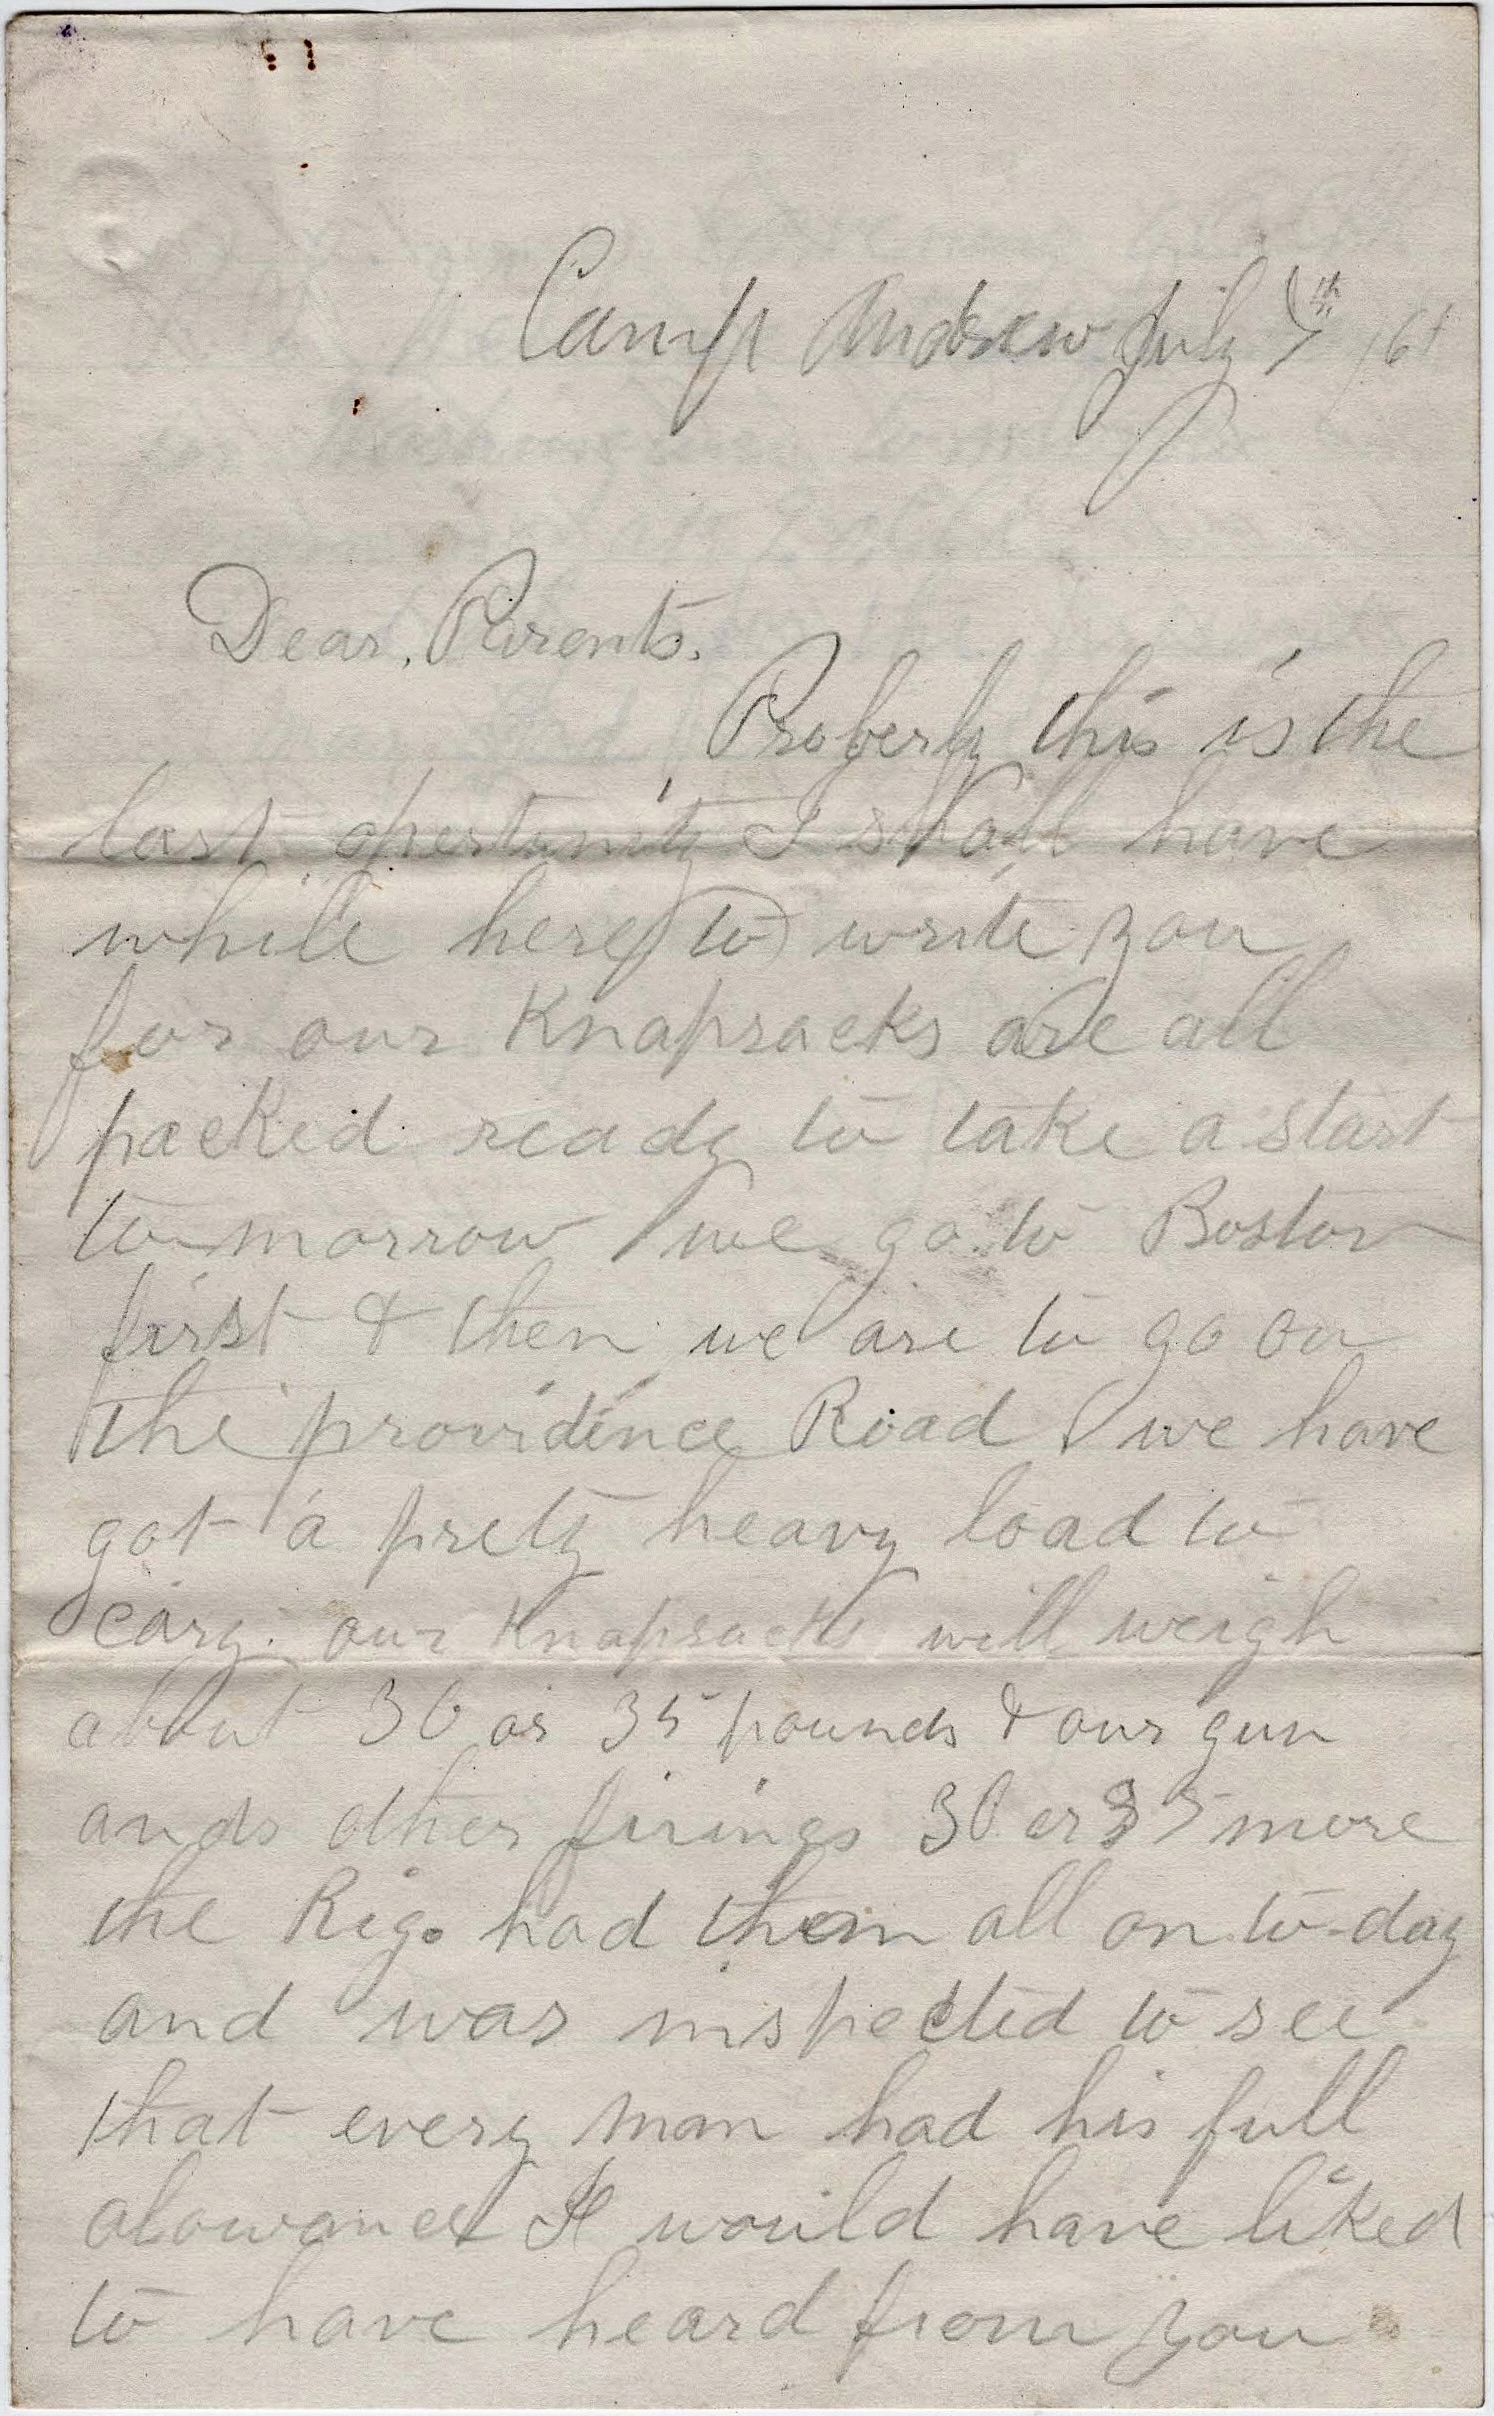 Camp Andrew July 7th /61
Dear, Parents.
Proberly this is the
last opertunity I shall have
while here to write you
for our Knapsacks are all
packed ready to take a start
to-morrow we go to Boston
first & then we are to go on
the providence Road we have
got a prety heavy load to
cary. our Knapsacks will weigh
about 30 or 35 pounds & our gun
ands other firings 30 or 35 more
the Rig. had them all on to-day
and was inspected to see
that every man had his full
alowance I would have liked
to have heard from you